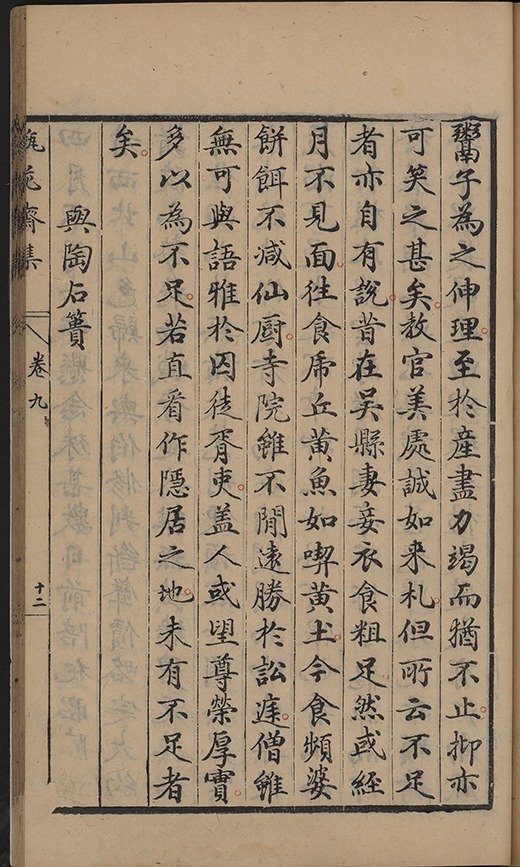 鬻子為之伸理至於產盡力竭而猶不止抑亦
可笑之甚矣教官美處誠如來札但所云不足
者亦自有說昔在吳縣妻妾衣食粗足然或經
月不見面往食虎丘黃魚如喫黃土今食頻婆
餅餌不減仙厨寺院雖不閒遠勝於訟庭僧雖
無可與語雅於囚徒胥吏盖人或望尊榮厚實
多以為不足若直看作隱居之地未有不足者
矣
與陶石簣
瓶花齋集
卷九
十二